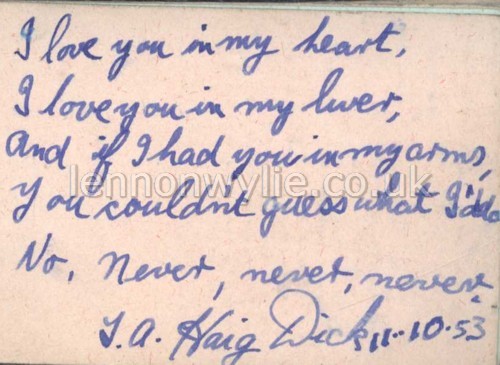 I love you in my heart,
I love you in my liver,
And if I had you in my arms,
You couldn't guess what I'd do
No, Never, never, never
J.A. Haig Dick 11.10.53
lennonwylie.co.uk